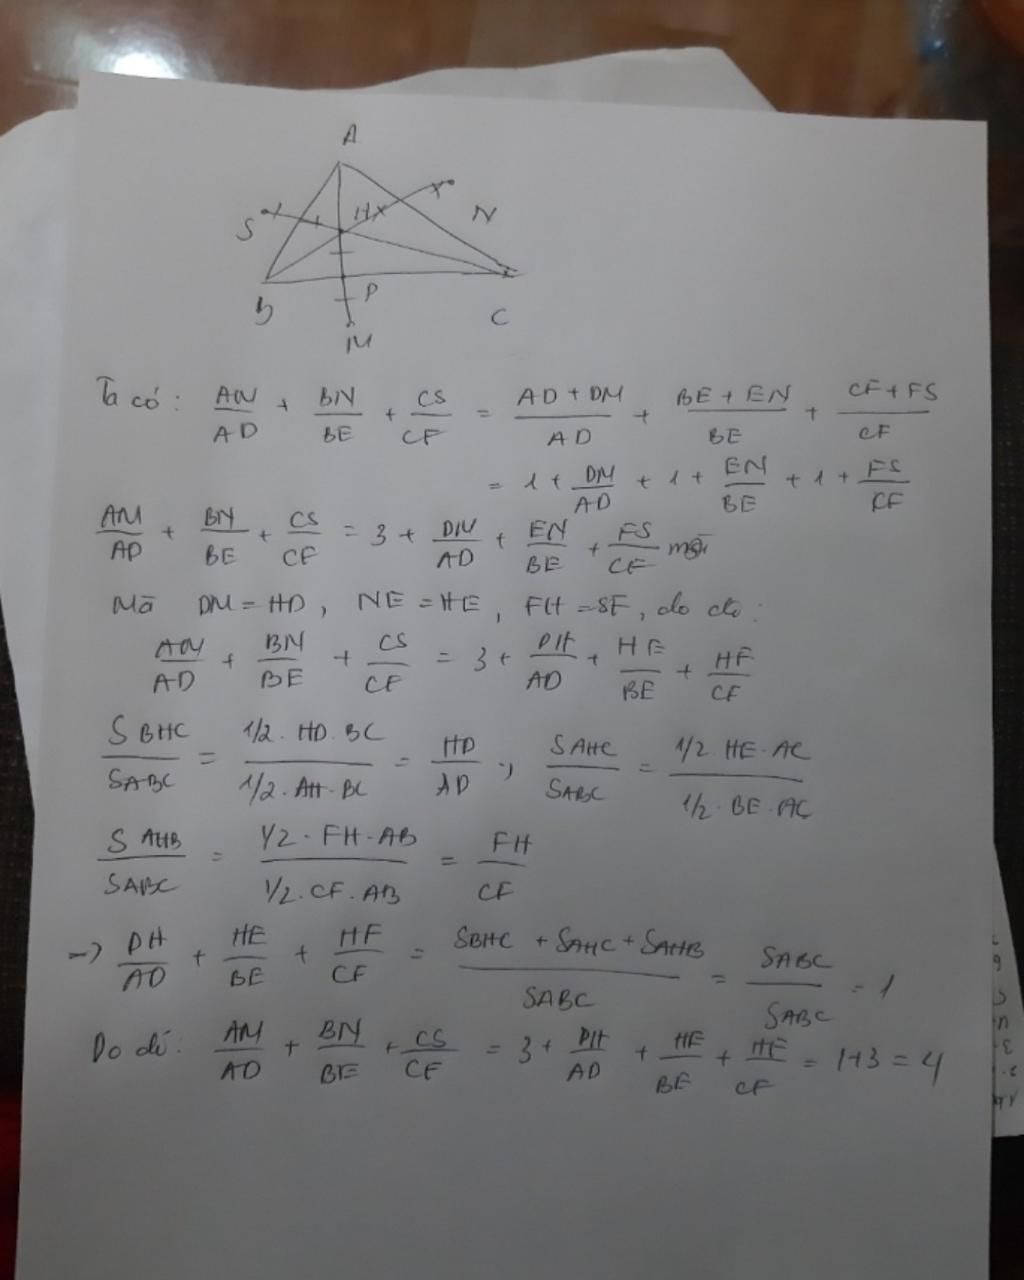 A
S
H
N
B
P
C
M
Ta có: AM/AD + BN/BE + CS/CF = AD + DM/AD + BE + EN/BE + CF + FS/CF
= 1 + DM/AD + 1 + EN/BE + 1 + FS/CF
AM/AD + BN/BE + CS/CF = 3 + DM/AD + EN/BE + FS/CF
Mà DM = HD, NE = HE, FH = SF, do đó:
AM/AD + BN/BE + CS/CF = 3 + DH/AD + HE/BE + HF/CF
SBHC/SABC = 1/2. HD. BC/1/2. AH. BC = HD/AD ; SAHC/SABC = 1/2. HE. AC/1/2. BE. AC
SAHB/SABC = 1/2. FH. AB/1/2. CF. AB = FH/CF
-> DH/AD + HE/BE + HF/CF = SBHC + SAHC + SAHB/SABC = SABC/SABC = 1
Do đó: AM/AD + BN/BE + CS/CF = 3 + DH/AD + HE/BE + HF/CF = 1+3 = 4